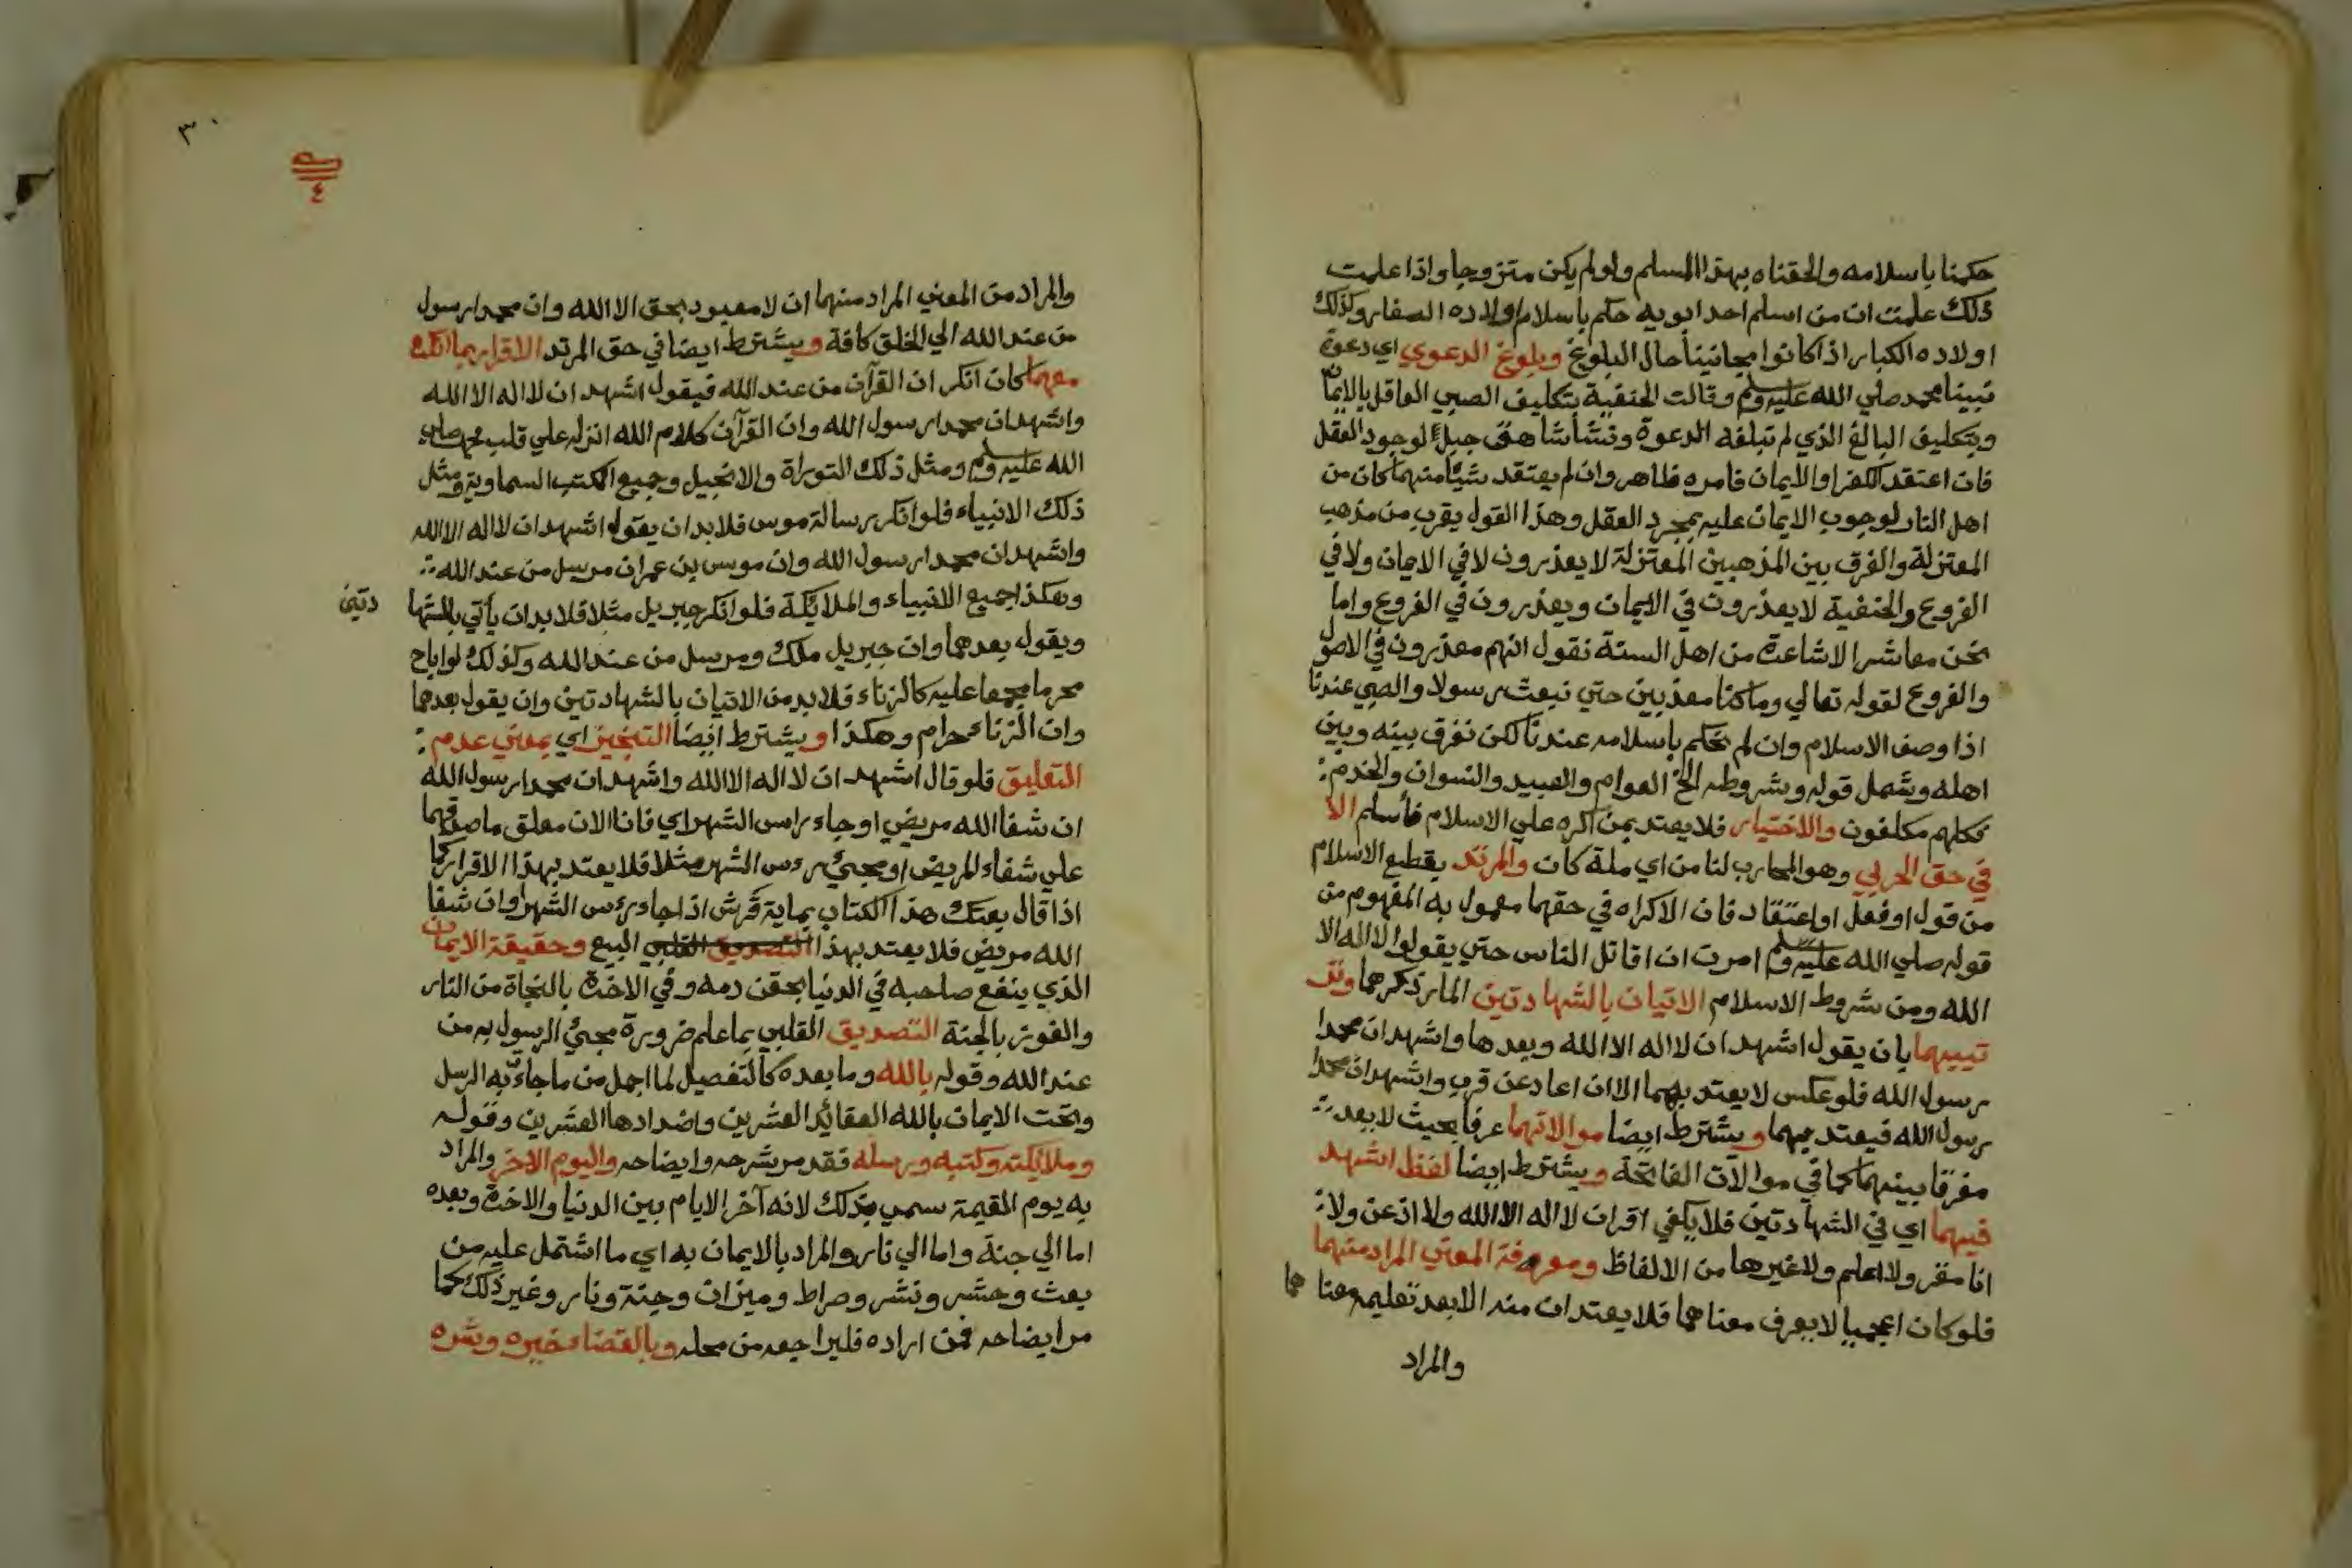 حكمنا باسلامه والحقناه بهذا المسلم ولو لم يكن متزوجا واذا علمت
ذلك علمت ان من اسلم احد ابويه حكم باسلام اولاده الصغار وكذلك
اولاده الكبار اذا كانوا مجانينا حال البلوغ وبلوغ الدعوي اي دعوة
نبينا محمد صلي الله عليه وسلم وقالت الحنفية بتكليف الصبي العاقل بالايمان
وبتكليف البالغ الذي لم تبلغه الدعوة ونشأ شاهق جبل لوجود العقل
فان اعتقد الكفر او الايمان فامره ظاهر وان لم يعتقد شيئا منهما كان من
اهل النار لوجوب الايمان عليه بمجرد العقل وهذا القول يقرب من مذهب
المعتزلة والفرق بين المذهبين المعتزلة لا يعذرون لا في الايمان ولا في
الفروع والحنفية لا يعذرون في الايمان ويعذرون في الفروع واما
نحن معاشر الاشاعرة من اهل السنة نقول انهم معذرون في الاصول
والفروع لقوله تعالي وما كنا معذبين حتي نبعث رسولا والصبي عندنا
اذا وصف الاسلام وان لم نحكم باسلامه عندنا لكن نفرق بينه وبين
اهله وشمل قوله وشروطه الخ العوام والعبيد والنسوان والخدم
فكلهم مكلفون والاختيار فلا يعتد بمن اكره علي الاسلام فأسلم الا
في حق الحربي وهو المحارب لنا من اي ملة كان والمرتد بقطع الاسلام
من قول او فعل او اعتقاد فان الاكراه في حقهما معمول به المفهوم من
قوله صلي الله عليه وسلم امرت ان اقاتل الناس حتي يقولوا لا اله الا
الله ومن شروط الاسلام الاتيان بالشهادتين المار ذكرهما وتر
تيبهما بان يقول اشهد ان لا اله الا الله وبعدها واشهد ان محمدا
رسول الله فلو عكس لا يعتد بهما الا ان اعاد عن قرب واشهد ان محمدا
رسول الله فيعتد بهما ويشترط ايضا موالاتهما عرفا بحيث لا يعد
مفرقا بينهما كما في موالات الفاتحة ويشترط ايضا لفظ اشهد
فيهما اي في الشهادتين فلا يكفي اقران لا اله الا الله ولا اذعن ولا
انا مقر ولا اعلم ولا غيرها من الالفاظ ومعرفة المعني المراد منهما
فلو كان اعجميا لا يعرف معناهما فلا يعتدان منه الا بعد تعليمه معنا هما
والمراد
٣٠
٤
والمراد من المعني المراد منهما ان لا معبود بحق الا الله وان محمدا رسول
من عند الله الي الخلق كافة ويشترط ايضا في حق المرتد الاقرار بما انكره
معهما كان انكر ان القرآن من عند الله فيقول اشهد ان لا اله الا الله
واشهد ان محمدا رسول الله وان القرآن كلام الله انزله علي قلب محمد صلي
الله عليه وسلم ومثل ذلك التوراة والانجيل وجميع الكتب السماوية ومثل
ذلك الانبياء فلو انكر رسالة موس فلا بد ان يقول اشهد ان لا اله الا الله
واشهد ان محمدا رسول الله وان موس بن عمران مرسل من عند الله
وهكذا جميع الانبياء والملائكة فلو انكر جبريل مثلا فلا بد ان يأتي بالشها دتين
ويقول بعدهما وان جبريل ملك ومرسل من عند الله وكذلك لو اباح
محرما مجمعا عليه كالزناء فلا بد من الاتيان بالشهادتين وان يقول بعدهما
وان الزناء حرام وهكذا ويشترط ايضا التنجيز اي بمعني عدم
التعليق فلو قال اشهد ان لا اله الا الله واشهد ان محمدا رسول الله
ان شفا الله مريضي او جاء راس الشهر اي فانا الان معلق ما صدقهما
علي شفاء المريض او مجئ رءس الشهر مثلا فلا يعتد بهذا الاقرار كما
اذا قال بعتك هذا الكتاب بماية قرش اذا جاء رءس الشهر او ان شفا
الله مريضي فلا يعتد بهذا التصديق القلبي البيع وحقيقة الايمان
الذي ينفع صاحبه في الدنيا بحقن دمه وفي الاخرة بالنجاة من النار
والفوز بالجنة التصديق القلبي بما علم ضرورة مجئ الرسول به من
عند الله وقوله بالله وما بعده كالتفصيل لما اجمل من ما جاءت به الرسل
وتحت الايمان بالله العقائد العشرين واضدادها العشرين وقوله
وملائكته وكتبه ورسله فقد مر شرحه وايضاحه واليوم الاخر والمراد
به يوم القيمة سمي بذلك لانه آخر الايام بين الدنيا والاخرة وبعده
اما الي جنة واما الي نار والمراد بالايمان به اي ما اشتمل عليه من
بعث وحشر ونشر وصراط وميزان وجنة ونار وغير ذلك كما
مر ايضاحه فمن اراده فليراجعه من محله وبالقضاء خيره وشره